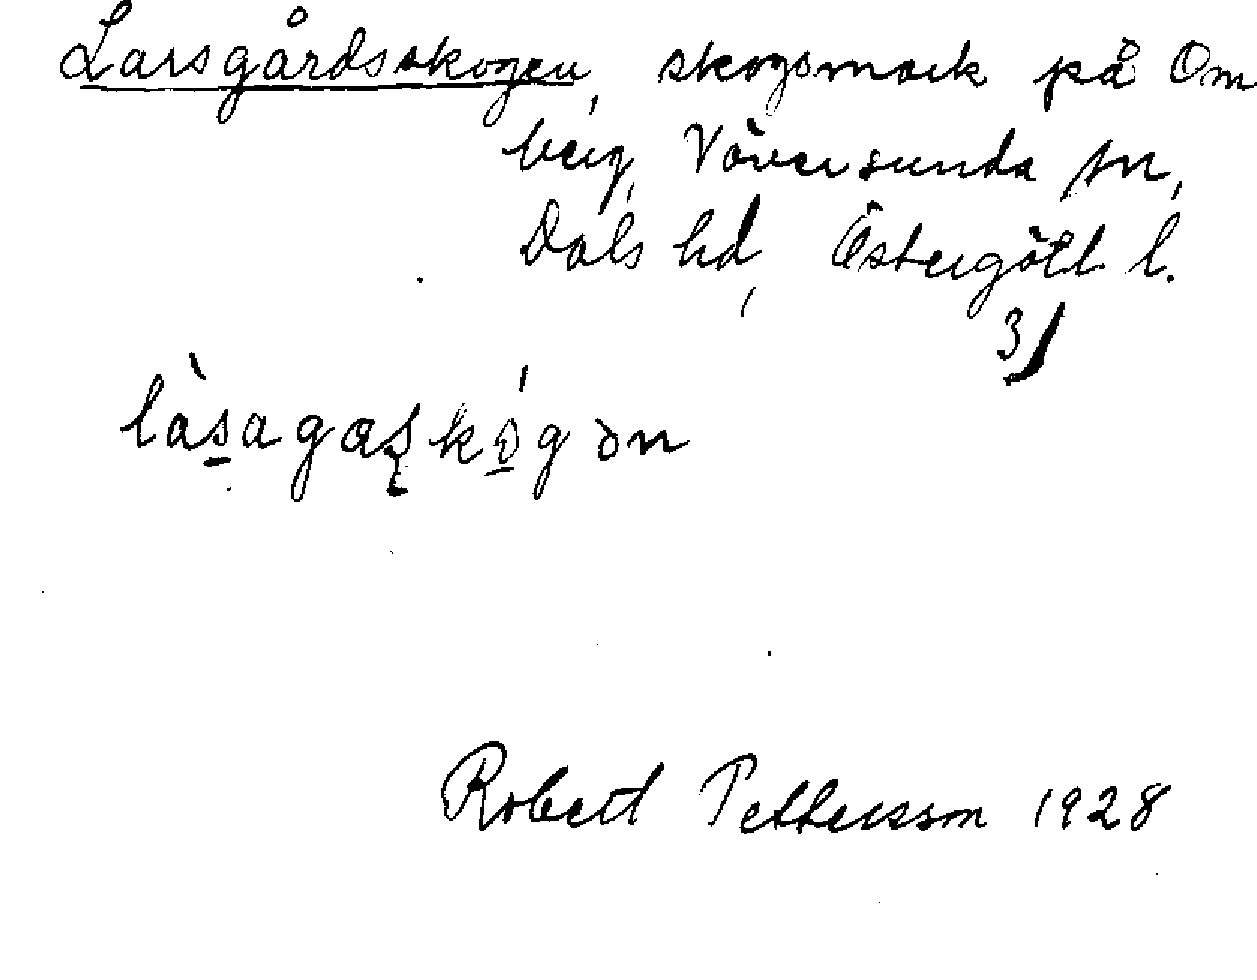 Larsgårdsskogen, skogsmark på Om
berg, Väversunda sn,
Dals hd, Östergötl l.
3/
làsagaskógən
Robert Pettersson 1928